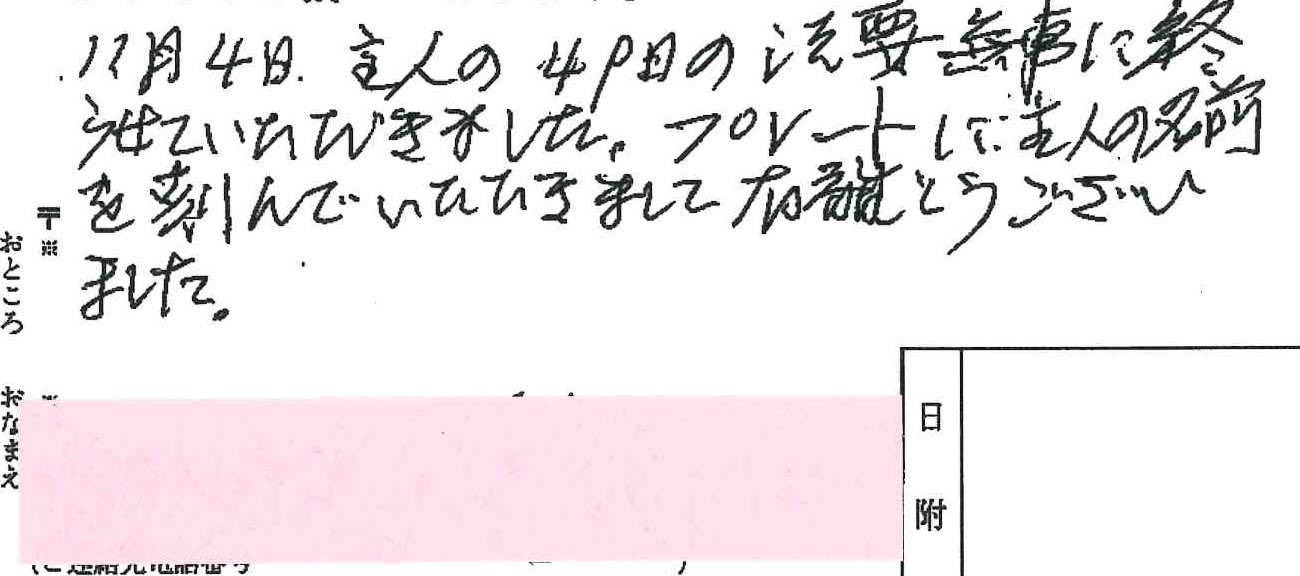 11月4日. 主人の49日の法要無事に終
らせていただきました。プレートに主人の名前
を刻んでいただきまして有難とうござい
ました。
〒
※
おところ
おなまえ
日附